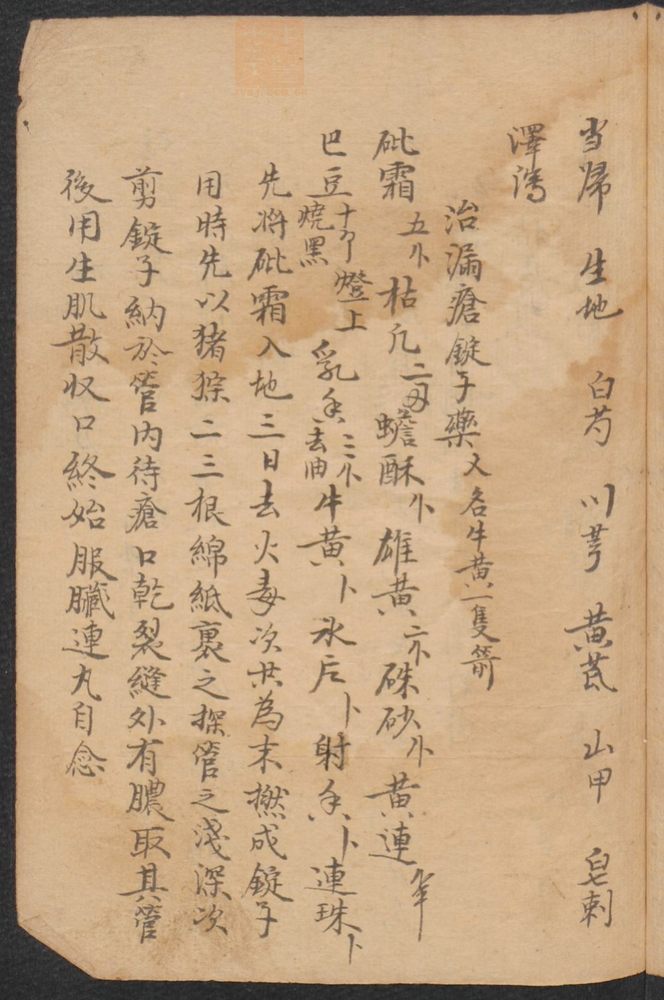 当歸 生地 白芍 川芎 黄芪 山甲 皂刺
澤瀉
治漏瘡錠子藥 又名牛黄一隻箭
砒霜 五卜 枯凡 二 蟾酥 卜 雄黄 二卜 硃砂 卜 黄連
巴豆 十个 燒黑 燈上 乳香 三卜 去油 牛黄 卜 氷片 卜 射香 卜 連珠 卜
先将砒霜入地三日去火毒次共為末撚成錠子
用時先以猪猔二三根綿紙裹之探管之淺深次
剪錠子納於管内待瘡口乾裂縫外有膿取其管
後用生肌散収口終始服臓連丸自念